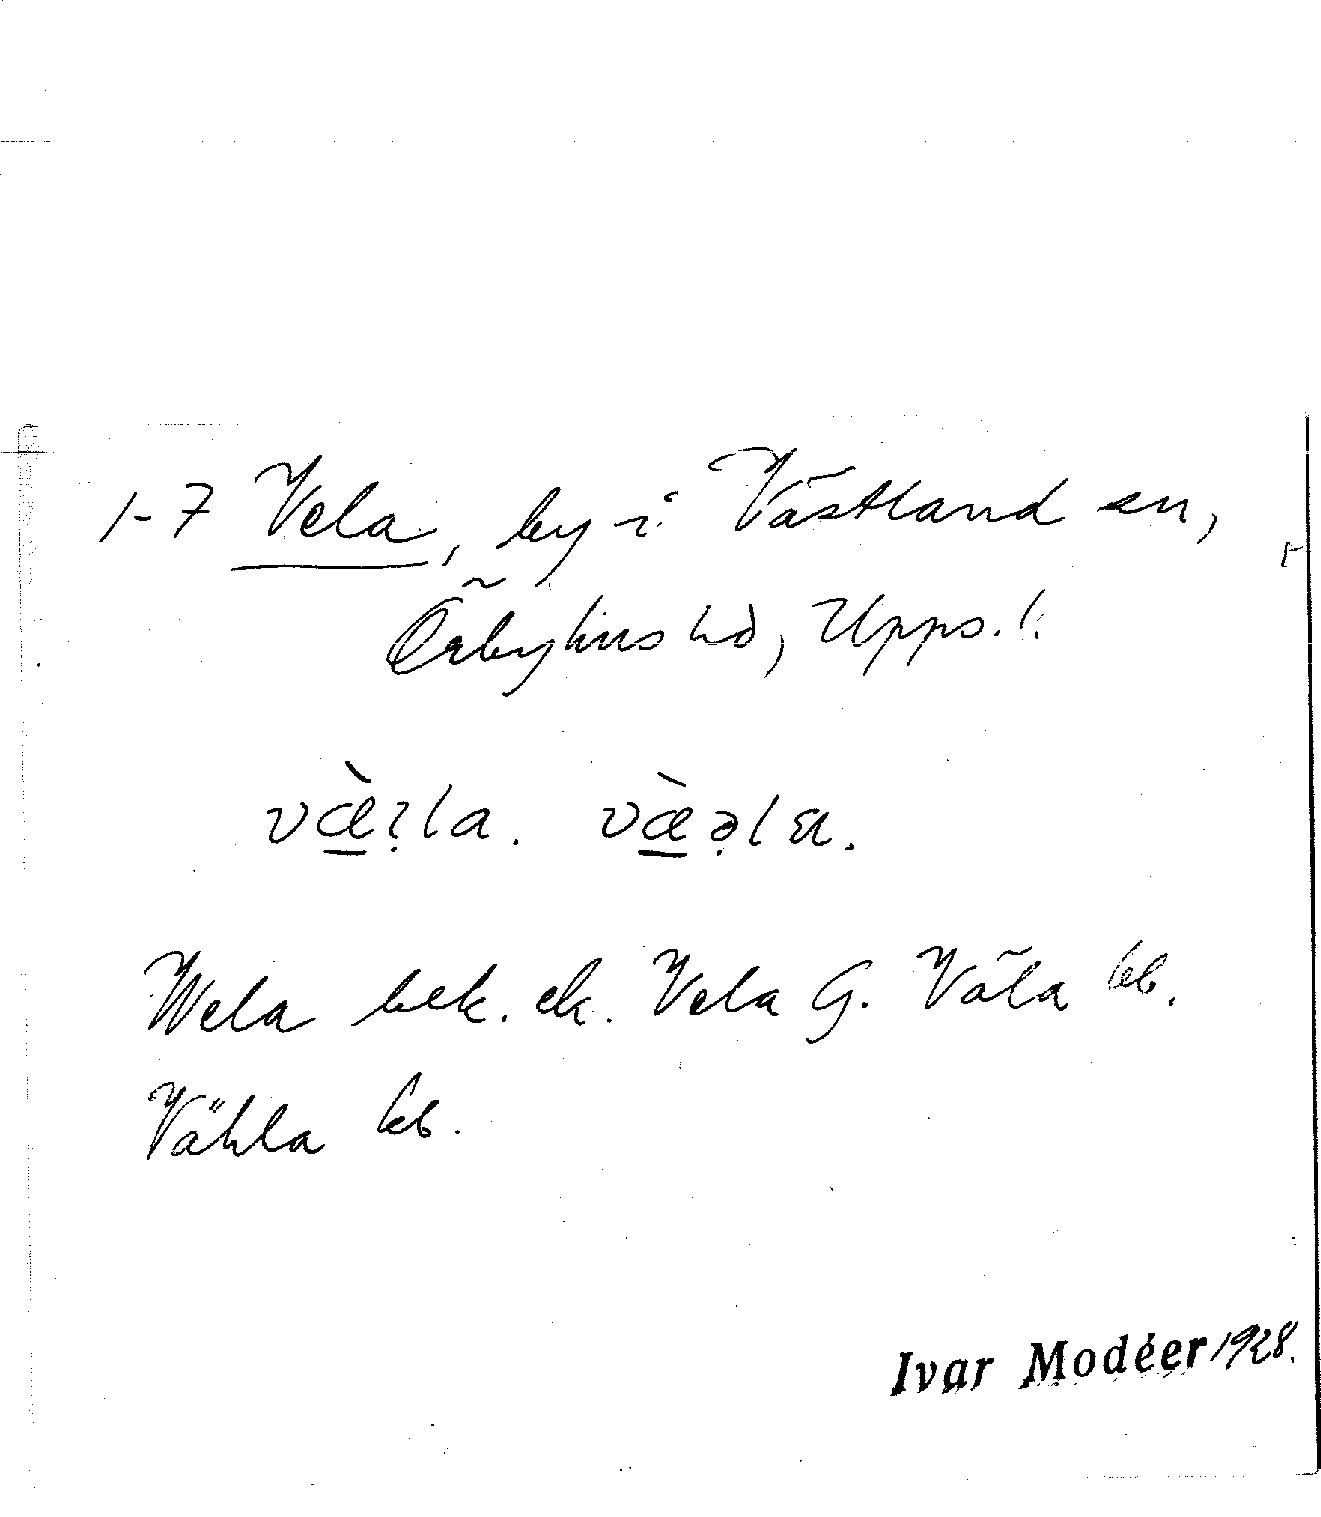 1-7 Vela, by i Västland sn,
Örbyhus hd, Upps. l.
væ̀ꞔla. væ̀əla.
Wela bek. ek. Vela G. Väla kb.
Vähla kb.
Ivar Modéer 1928.